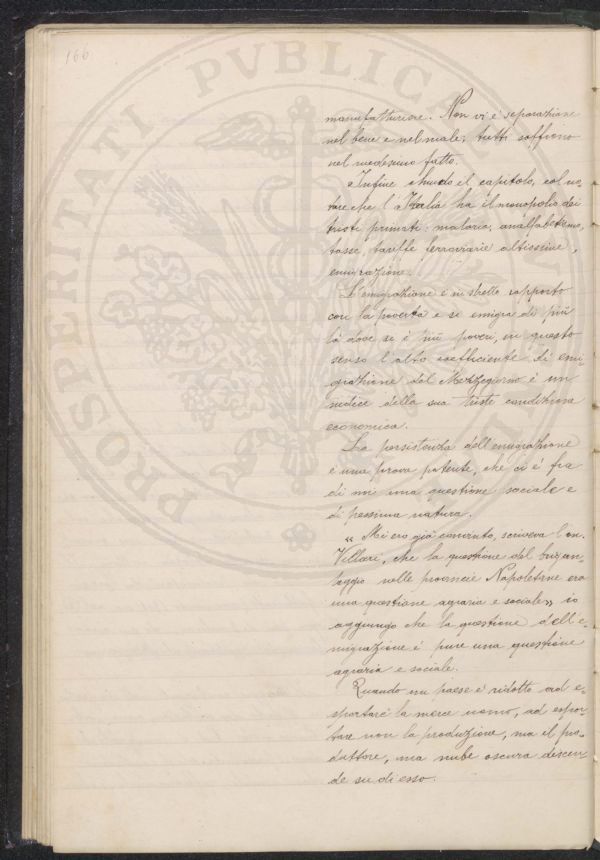 166
manufatturiere. Non vi è separazione
nel bene e nel male; tutti soffrono
nel medesimo fatto.
Infine chiudo il capitolo, col no-
tare che l'Italia ha il monopolio dei
tristi primati: malaria, analfabetismo,
tasse, tariffe ferroviarie altissime,
emigrazione.
L'emigrazione è in stretto rapporto
con la povertà e si emigra di più
là dove si è più poveri, in questo
senso l'alto coefficiente di emi-
grazione del Mezzogiorno è un
indice della sua triste condizione
economica.
La persistenza dell'emigrazione
è una prova potente, che ci è fra
di noi una questione sociale e
di pessima natura.
« Mi ero già convinto, scriveva l'on.
Villari, che la questione del brigan-
taggio nelle provincie Napoletane era
una questione agraria e sociale» io
aggiungo che la questione dell'e-
migrazione è pure una questione
agraria e sociale.
Quando un paese è ridotto ad e-
sportare la merce uomo, ad espor-
tare non la produzione, ma il pro-
duttore, una nube oscura discen-
de su di esso.
PROSPERITATI PVBLICAE